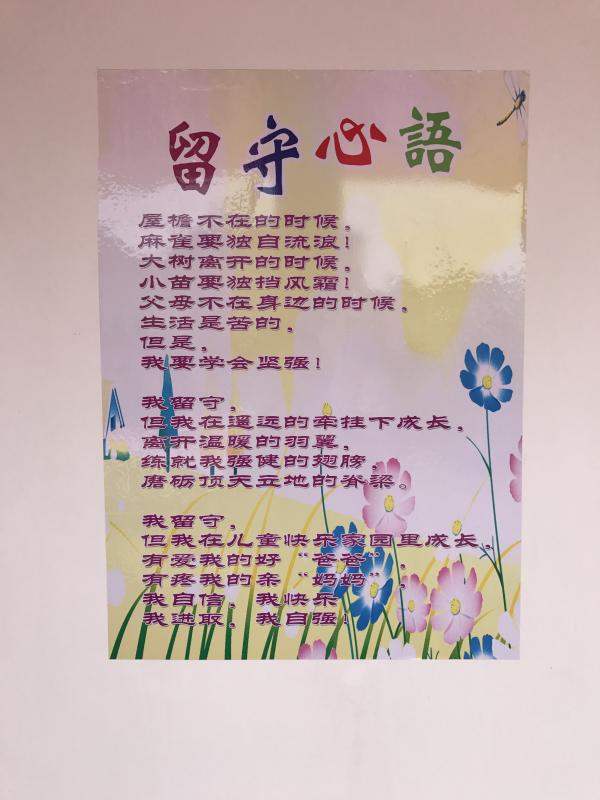 留守心語
屋檐不在的时候，
麻雀要独自流浪！
大树离开的时候，
小苗要独挡风霜！
父母不在身边的时候，
生活是苦的，
但是，
我要学会坚强！
我留守，
但我在遥远的牵挂下成长，
离开温暖的羽翼，
练就我强健的翅膀，
磨砺顶天立地的脊梁。
我留守，
但我在儿童快乐家园里成长，
有爱我的好“爸爸”，
有疼我的亲“妈妈”，
我自信，我快乐
我进取，我自强！